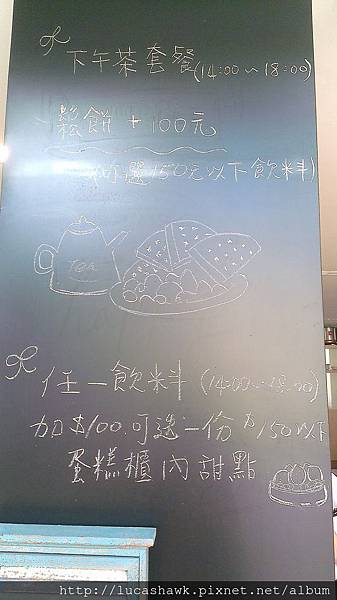 下午茶套餐(14:00~18:00)
鬆餅 + 100元
選150元以下飲料)
Tea
任一飲料 (14:00~18:00)
加$100可選一份$150以下
蛋糕櫃內甜點
http://lucashawk.pixnet.net/album